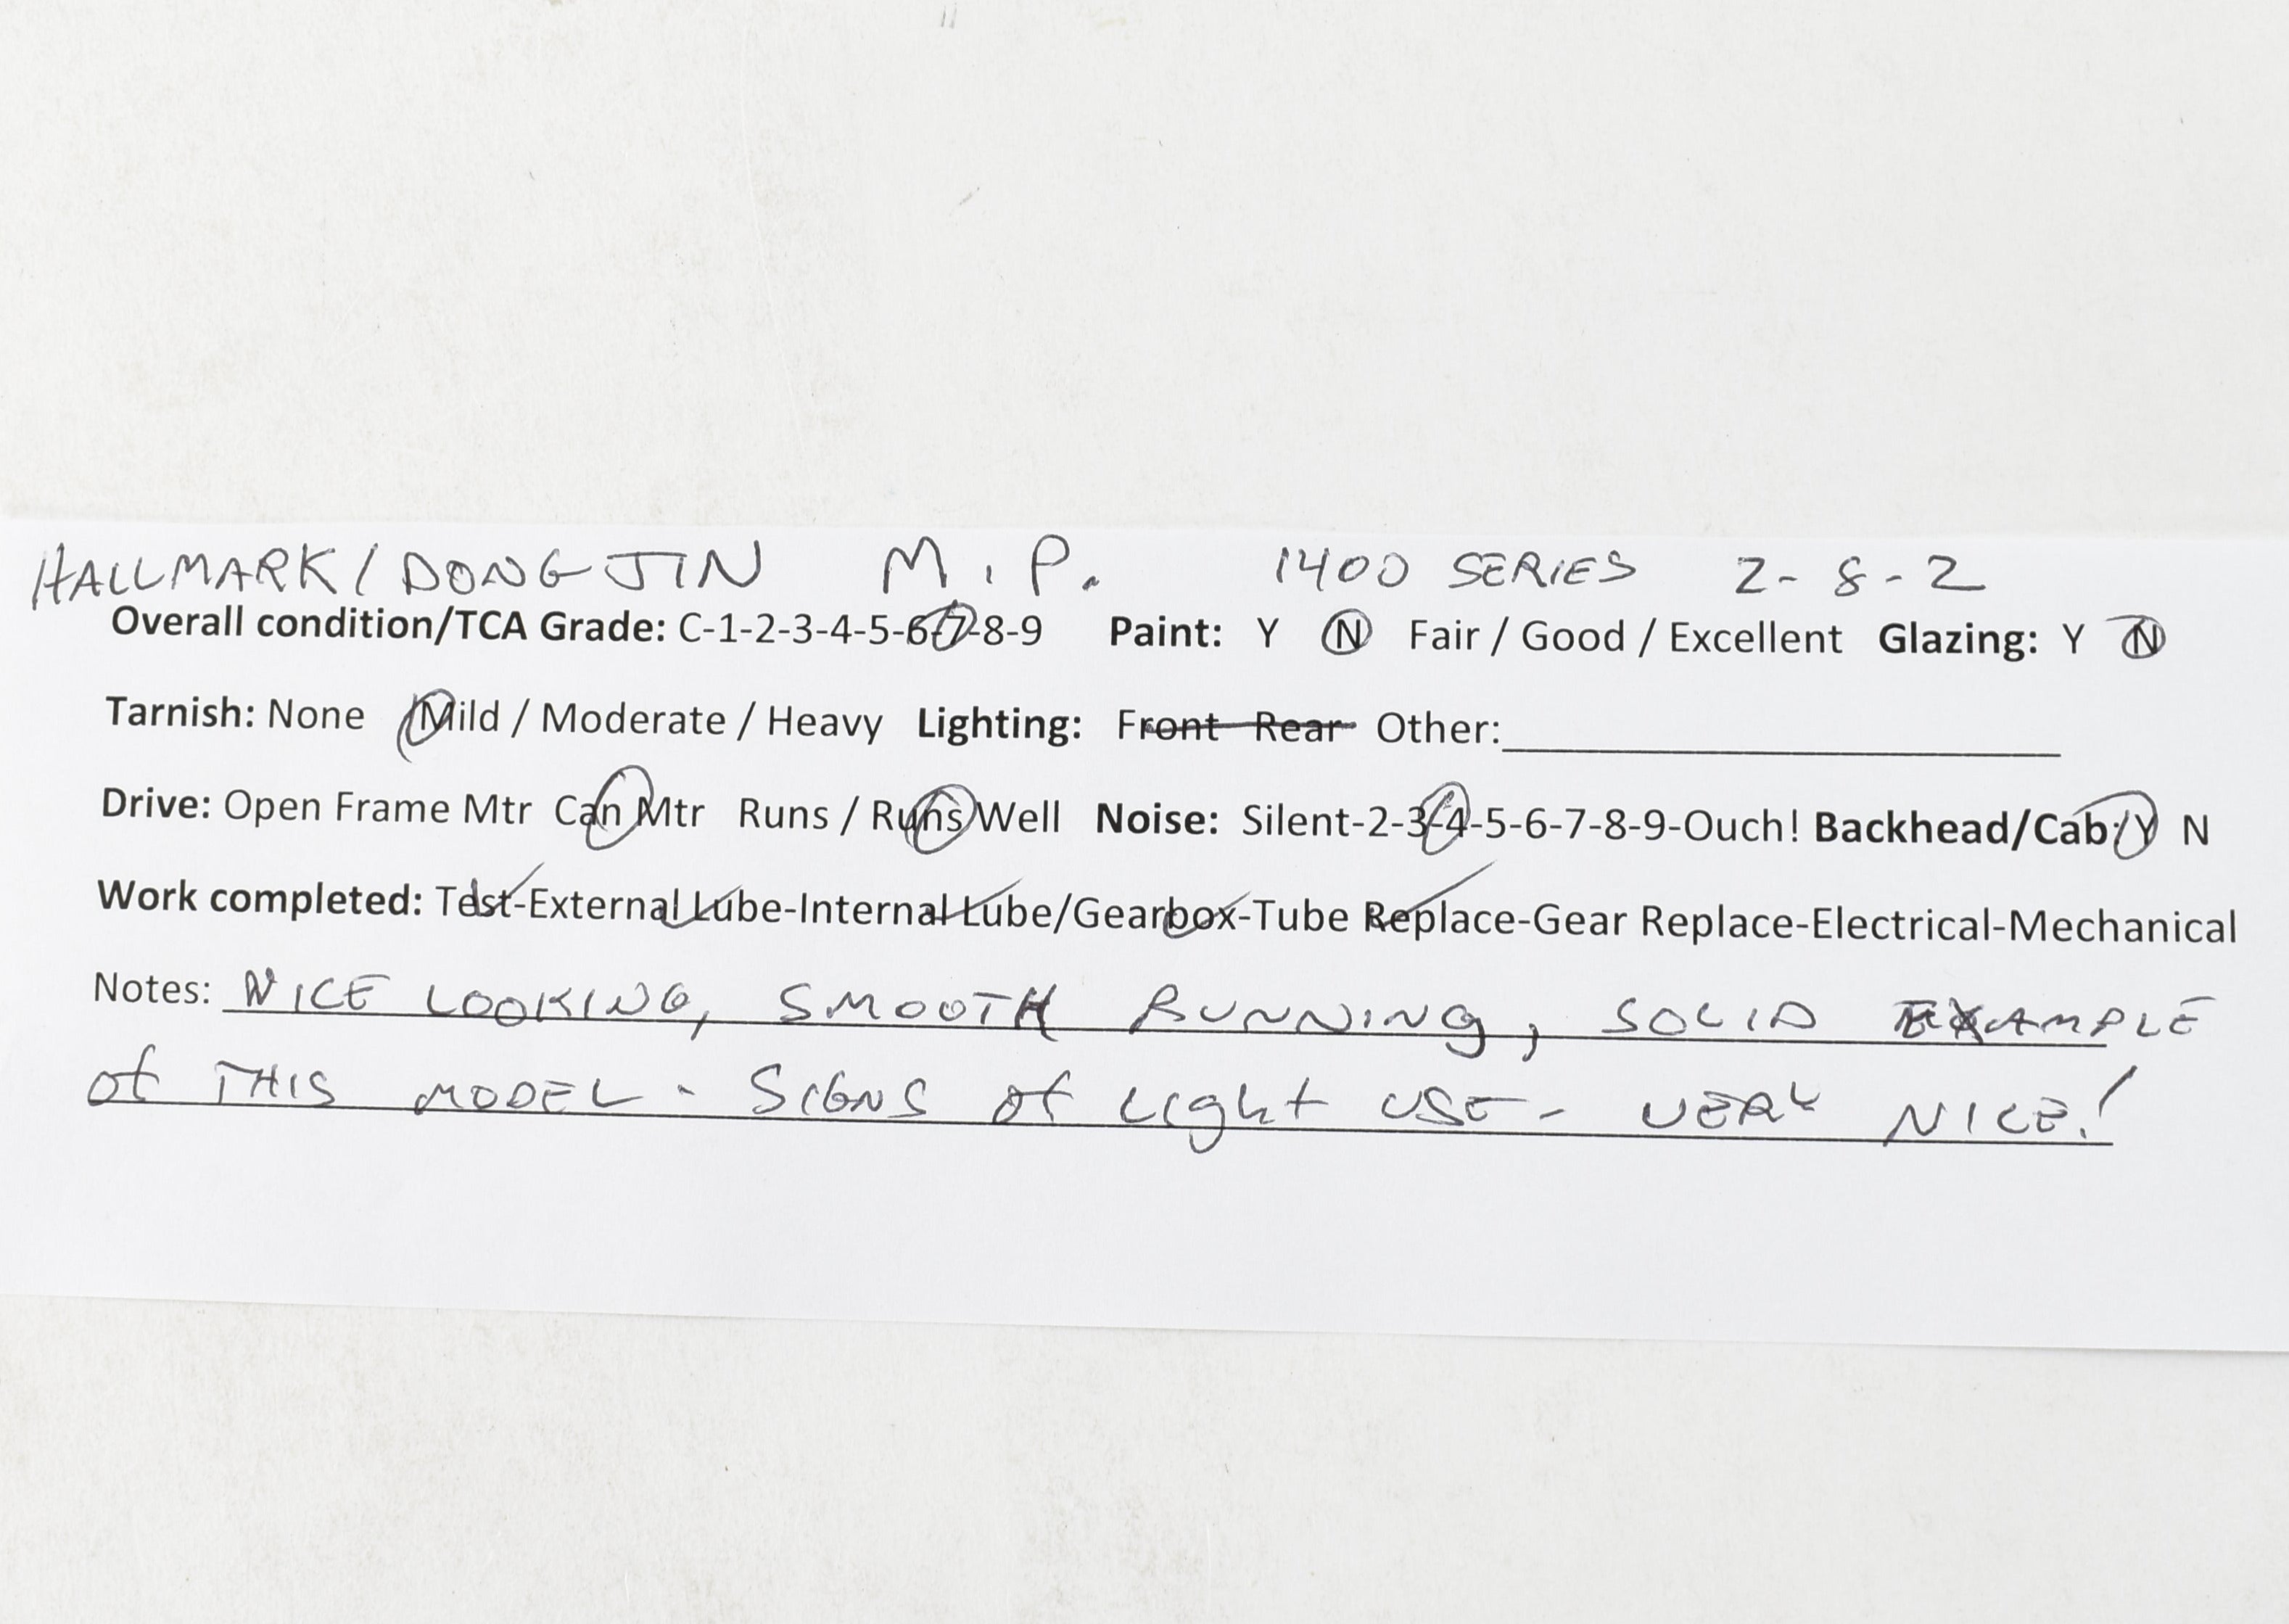 HALLMARK/DONG JIN M.P. 1400 SERIES 2-8-2
Overall condition/TCA Grade: C-1-2-3-4-5-6-7-8-9 Paint: Y N Fair / Good / Excellent Glazing: Y N
Tarnish: None Mild / Moderate / Heavy Lighting: Front Rear Other:
Drive: Open Frame Mtr Can Mtr Runs / Runs Well Noise: Silent-2-3-4-5-6-7-8-9-Ouch! Backhead/Cab: Y N
Work completed: Test-External Lube-Internal Lube/Gearbox-Tube Replace-Gear Replace-Electrical-Mechanical
Notes: NICE LOOKING, SMOOTH RUNNING, SOLID EXAMPLE
of THIS MODEL - SIGNS of Light USE - VERY NICE!